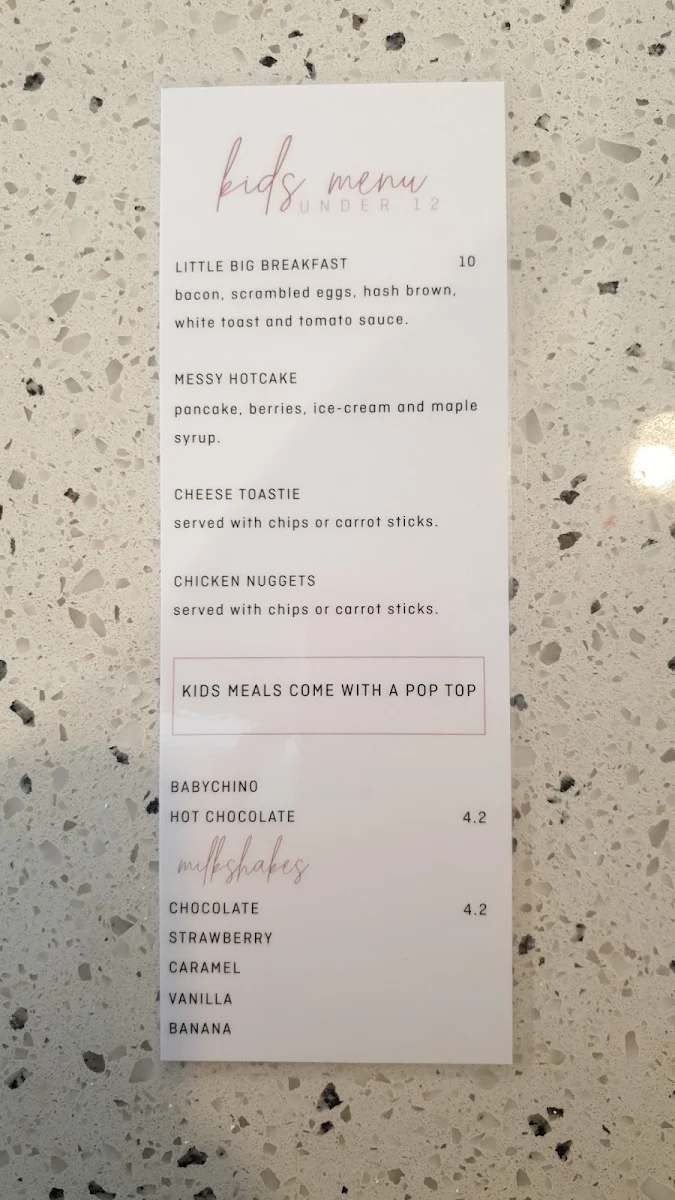 kids menu
UNDER 12
LITTLE BIG BREAKFAST 10
bacon, scrambled eggs, hash brown,
white toast and tomato sauce.
MESSY HOTCAKE
pancake, berries, ice-cream and maple
syrup.
CHEESE TOASTIE
served with chips or carrot sticks.
CHICKEN NUGGETS
served with chips or carrot sticks.
KIDS MEALS COME WITH A POP TOP
BABYCHINO
HOT CHOCOLATE 4.2
milkshakes
CHOCOLATE 4.2
STRAWBERRY
CARAMEL
VANILLA
BANANA